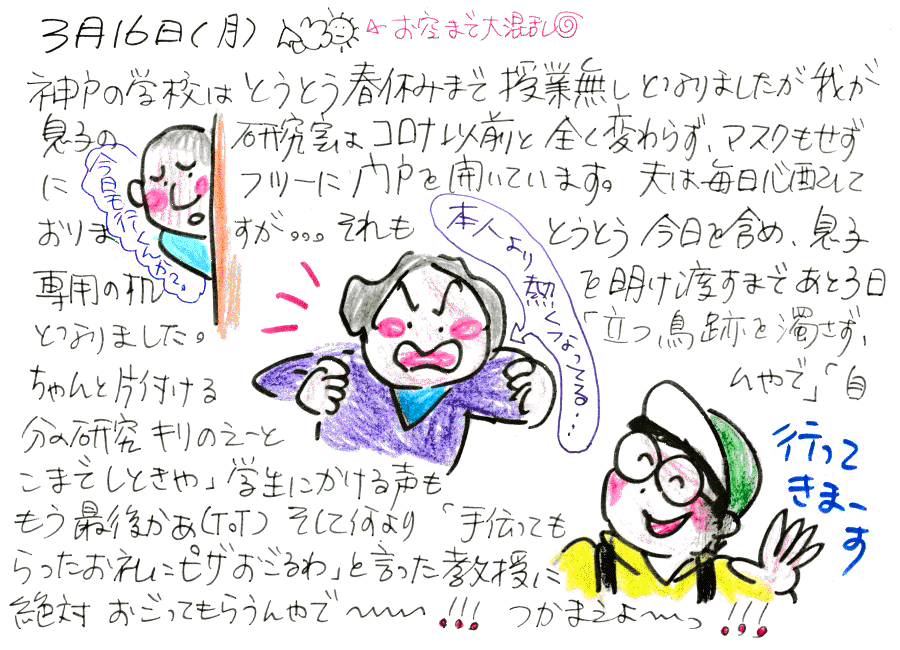 3月16日(月) ←お空まで大混乱
神戸の学校は とうとう春休みまで 授業無しとなりましたが 我が
息子の 研究室はコロナ以前と 全く変わらず、マスクもせず
に フツーに 門戸を開いています。 夫は毎日心配して
おりま すが。。。それも とうとう 今日を含め、息子
専用の机 を明け渡すまで あと3日
となりました。 「立つ鳥跡を濁さず、
ちゃんと片付ける んやで」「自
分の研究 キリのえーと
こまでしときや」学生にかける声も
もう最後かあ(ToT) そして何より 「手伝っても
らったお礼にピザおごるわ」と言った教授に
絶対 おごってもらうんやで〜〜!!! つかまえよ〜っ!!!
今日も行くんかて。
本人より熱くなってる…
行って
きまー
す